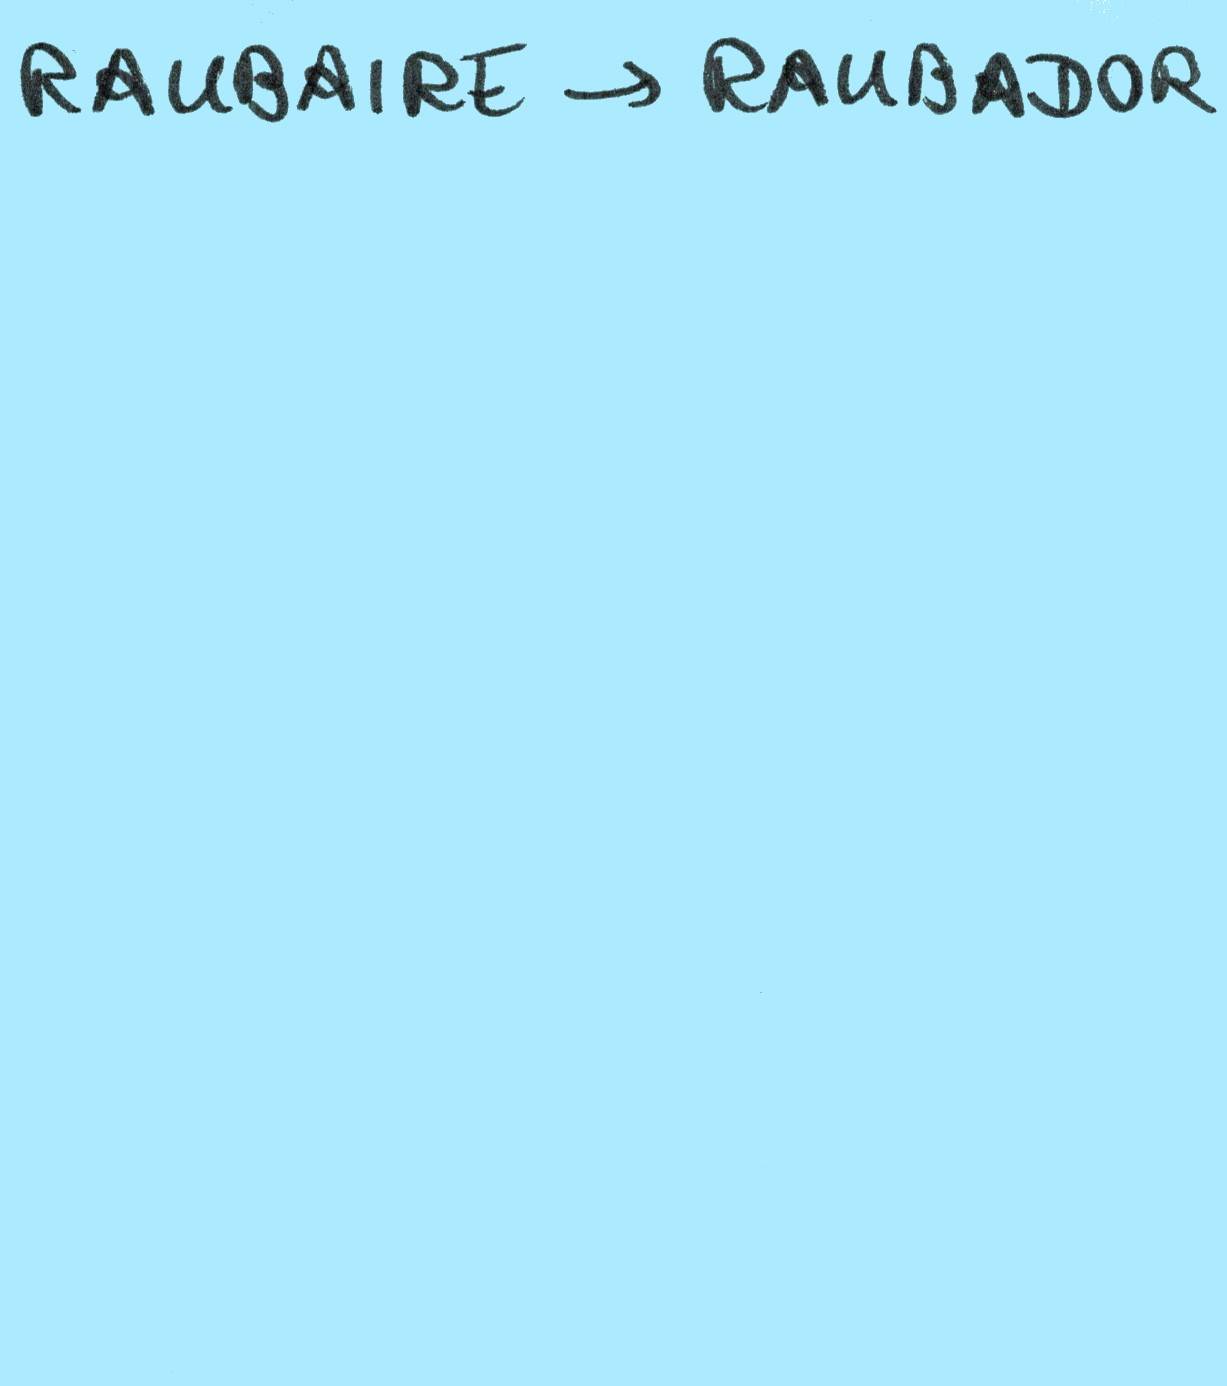 RAUBAIRE → RAUBADOR